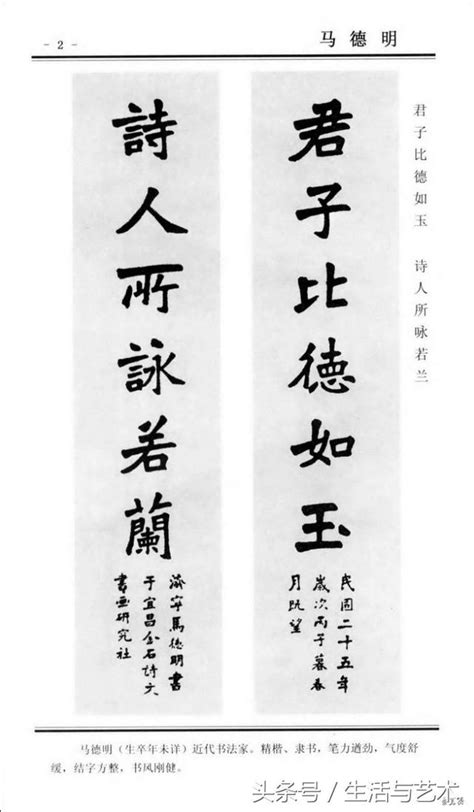 - 2 -
马德明
君子比德如玉
诗人所咏若兰
君子比德如玉
民国二十五年
歲次丙子暮春
月既望
詩人所詠若蘭
濟寧馬德明書
于宜昌金石詩文
書画研究社
马德明（生卒年未详）近代书法家。精楷、隶书，笔力遒劲，气度舒
缓，结字方整，书风刚健。
头条号／生活与艺术